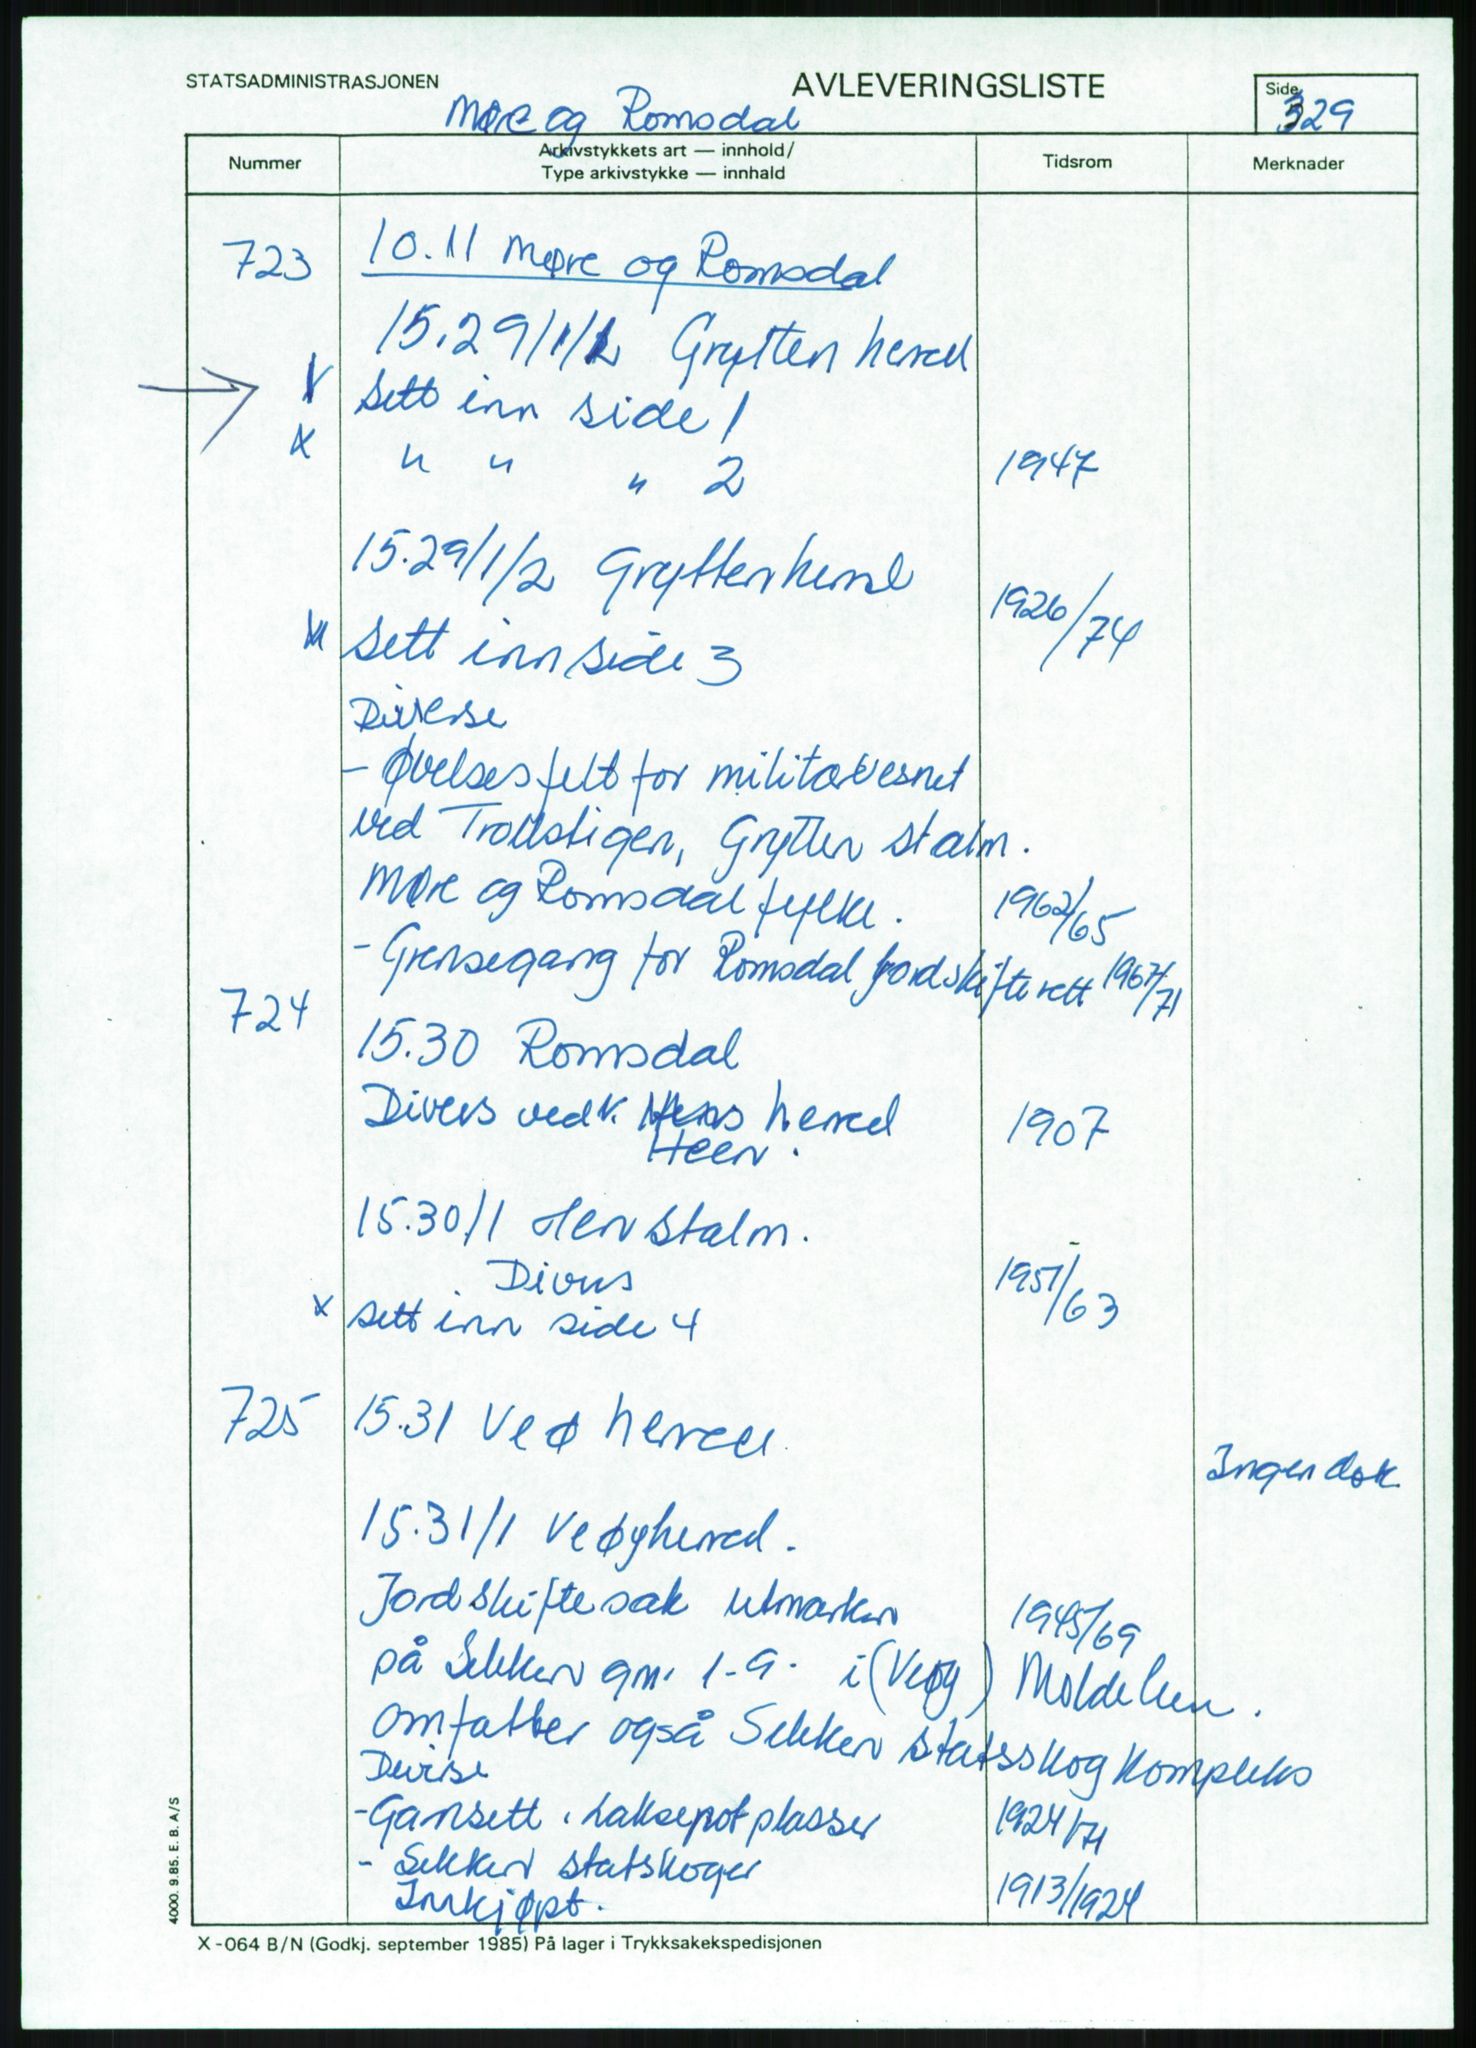 STATSADMINISTRASJONEN
AVLEVERINGSLISTE
Side
329
Møre og Romsdal
Nummer
Arkivstykkets art — innhold/
Type arkivstykke — innhald
Tidsrom
Merknader
723 10.11 Møre og Romsdal
15.29/1/1 Grytten herred
x Sett inn side 1
x " " " 2 1947
15.29/1/2 Grytten herred
1926/74
x Sett inn side 3
Diverse
- Øvelsesfelt for militærvesnet
ved Trollstigen, Grytten stalm.
Møre og Romsdal fylke. 1962/65
- Grensegang for Romsdal jordskifterett 1967/71
724
15.30 Romsdal
Divers vedk. herred 1907
Heen.
15.30/1 Hen stalm.
Divers 1951/63
x sett inn side 4
725 15.31 Veø herred
Ingen dok
15.31/1 Veøy herred.
Jordskiftesak utmarken 1945/69
på Sekken gnr. 1-9. i (Veøy) Molde kom.
omfatter også Sekken statsskog kompleks
Diverse
- Gansett. laksenotplasser 1924/71
- Sekken statskoger
Innkjøpt. 1913/1924
4000. 9.85. E. B. A/S
X-064 B/N (Godkj. september 1985) På lager i Trykksakekspedisjonen